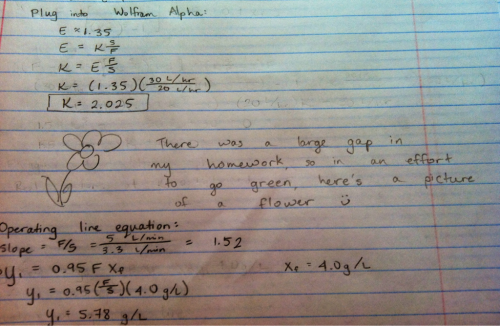 Plug into Wolfram Alpha:
E ≈ 1.35
E = K S/F
K = E F/S
K = (1.35)(30 L/hr / 20 L/hr)
K = 2.025
There was a large gap in
my homework, so in an effort
to go green, here's a picture
of a flower ü
Operating line equation:
slope = F/S = 5 L/min / 3.3 L/min = 1.52
y₁ = 0.95 F xF
xF = 4.0 g/L
y₁ = 0.95 (F/S)(4.0 g/L)
y₁ = 5.78 g/L